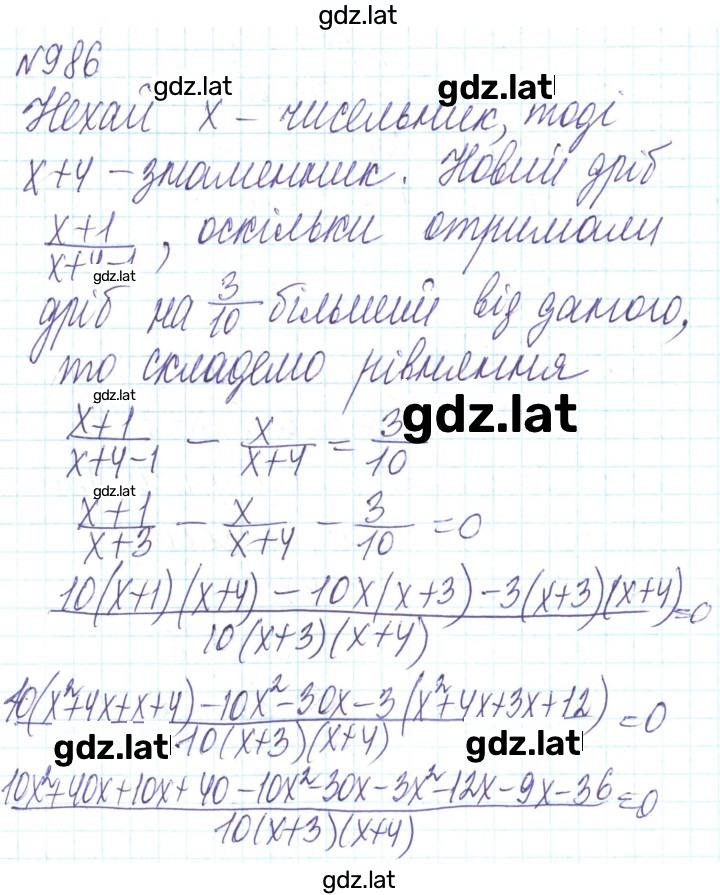 gdz.lat
№986
gdz.lat gdz.lat
Нехай x – чисельник, тоді
x+4 – знаменник. Новий дріб
(x+1)/(x+4-1), оскільки отримали
gdz.lat
дріб на 3/10 більший від даного,
то складемо рівняння
gdz.lat gdz.lat
(x+1)/(x+4-1) - x/(x+4) = 3/10
gdz.lat
(x+1)/(x+3) - x/(x+4) - 3/10 = 0
(10(x+1)(x+4) - 10x(x+3) - 3(x+3)(x+4))/(10(x+3)(x+4)) = 0
(10(x²+4x+x+4) - 10x² - 30x - 3(x²+4x+3x+12))/(10(x+3)(x+4)) = 0
gdz.lat gdz.lat
(10x²+40x+10x+40-10x²-30x-3x²-12x-9x-36)/(10(x+3)(x+4)) = 0
gdz.lat